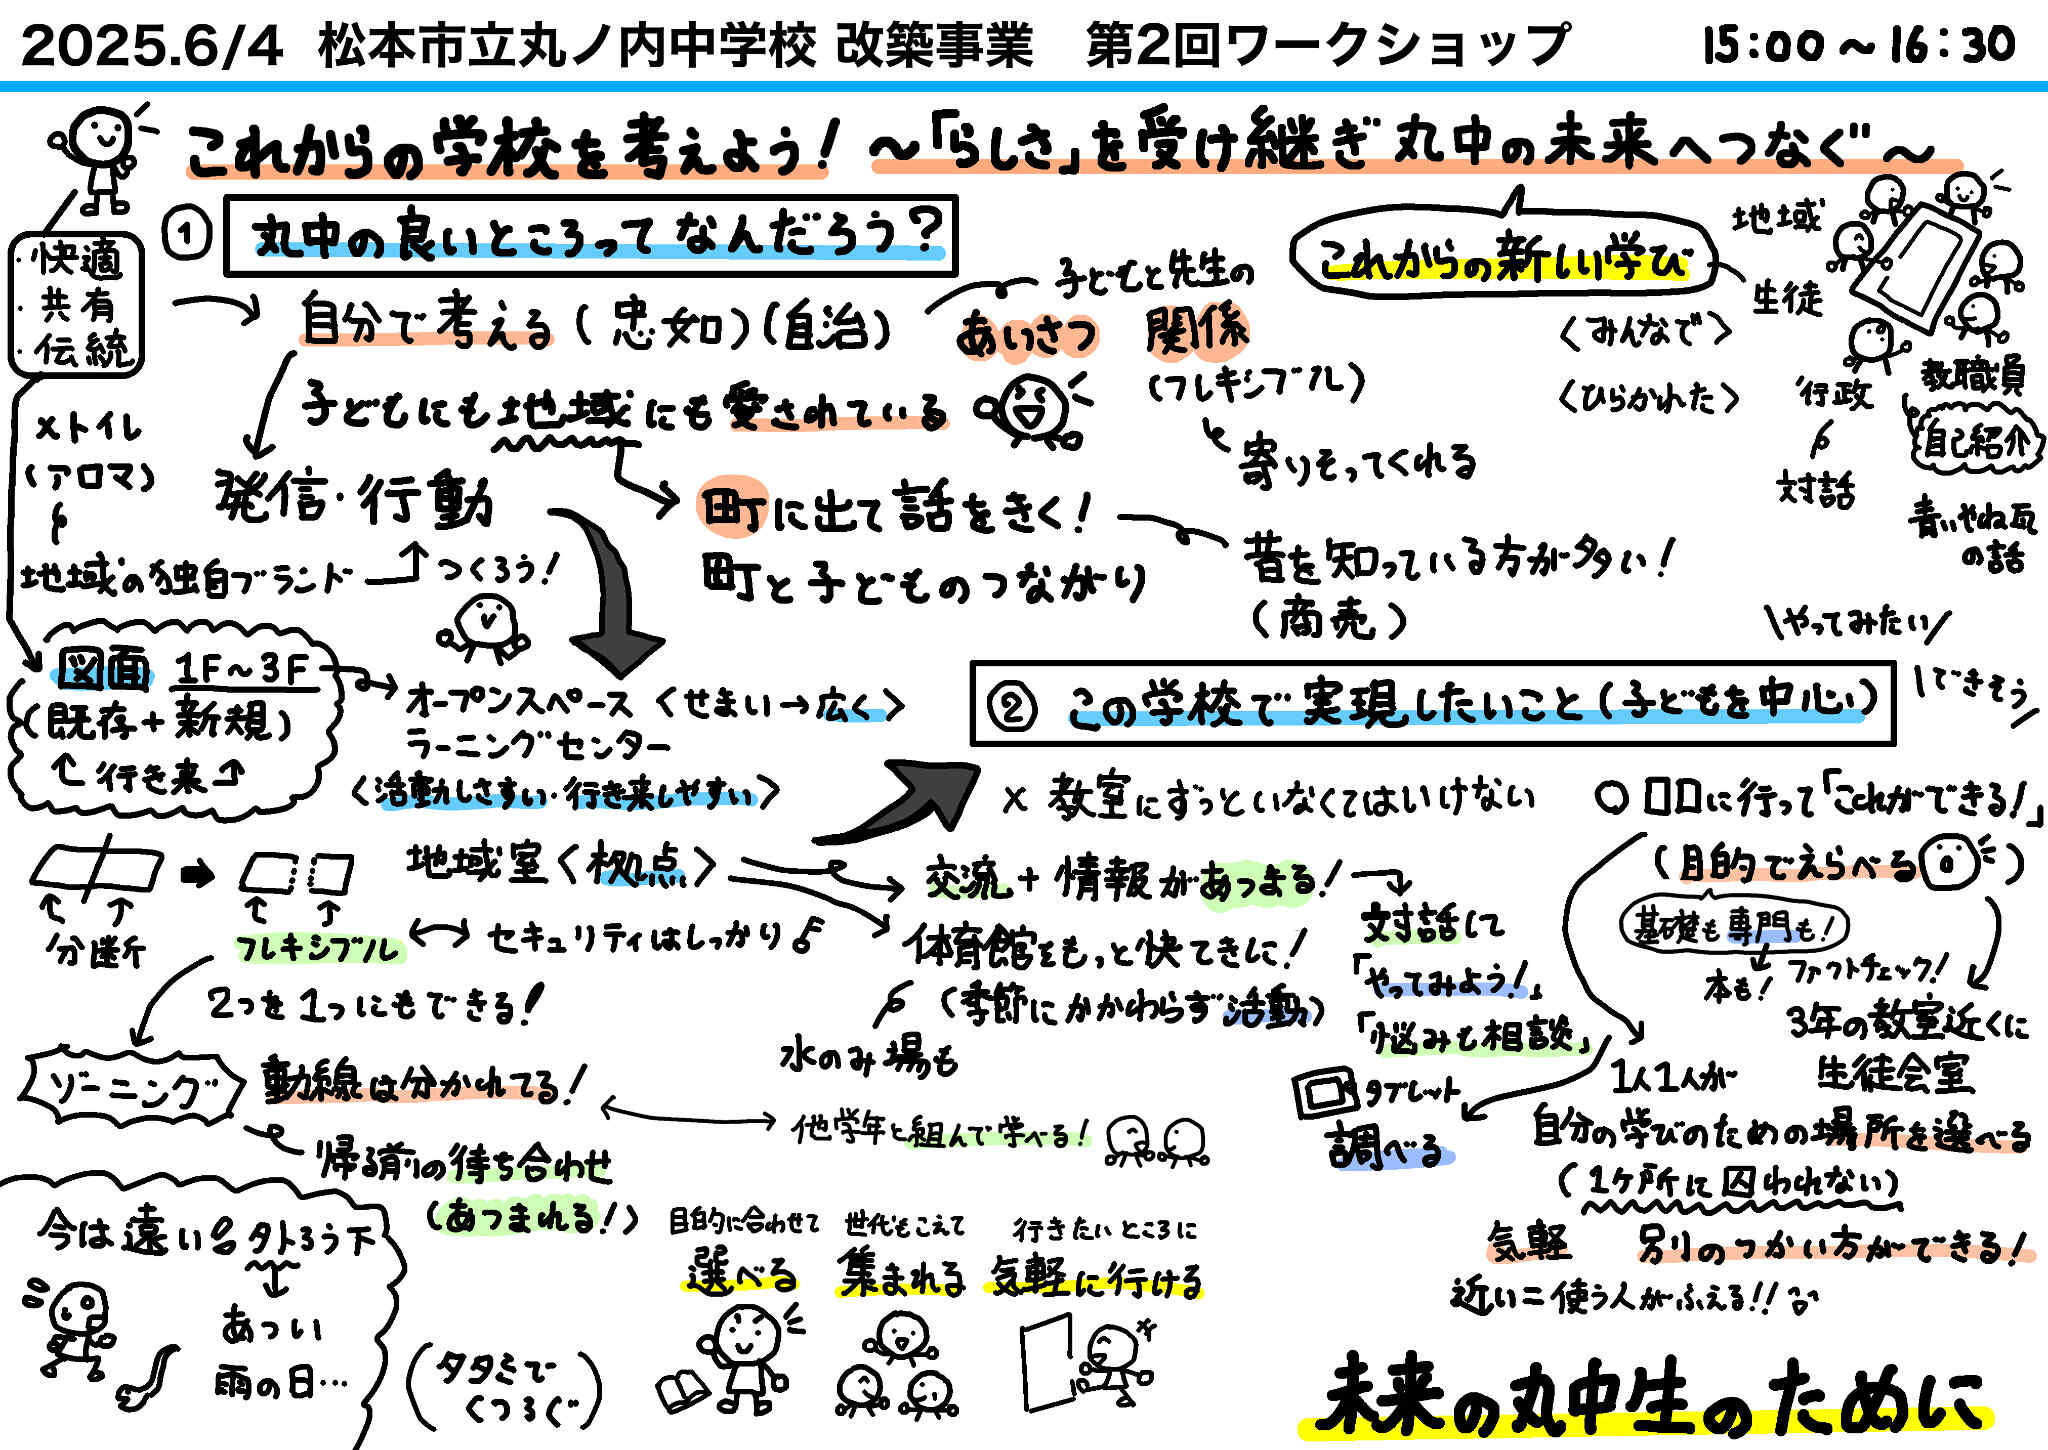 2025.6/4 松本市立丸ノ内中学校 改築事業 第2回ワークショップ 15:00～16:30
これからの学校を考えよう！～「らしさ」を受け継ぎ丸中の未来へつなぐ～
① 丸中の良いところってなんだろう？
・快適
・共有
・伝統
自分で考える（忠如）（自治）
あいさつ
子どもと先生の
関係
（フレキシブル）
寄りそってくれる
これからの新しい学び
〈みんなで〉
〈ひらかれた〉
地域
生徒
行政
対話
教職員
自己紹介
青いやね瓦
の話
子どもにも地域にも愛されている
×トイレ
（アロマ）
地域の独自ブランド
発信・行動
つくろう！
町に出て話をきく！
町と子どものつながり
昔を知っている方が多い！
（商売）
\やってみたい/
\できそう/
図面 1F～3F
（既存＋新規）
行き来
オープンスペース〈せまい→広く〉
ラーニングセンター
〈活動しさすい・行き来しやすい〉
地域室〈拠点〉
セキュリティはしっかり
分断
フレキシブル
2つを1つにもできる！
ゾーニング
動線は分かれてる！
帰る前の待ち合わせ
（あつまれる！）
今は遠い
外ろう下
あつい
雨の日…
（タタミで
くつろぐ）
② この学校で実現したいこと（子どもを中心）
× 教室にずっといなくてはいけない
○ □□に行って「これができる！」
（目的でえらべる）
基礎も専門も！
本も！
ファクトチェック！
3年の教室近くに
生徒会室
交流＋情報があつまる！
対話して
「やってみよう！」
「悩みも相談」
体育館をもっと快てきに！
（季節にかかわらず活動）
水のみ場も
他学年と組んで学べる！
タブレット
調べる
1人1人が
自分の学びのための場所を選べる
（1ヶ所に囚われない）
気軽 別のつかい方ができる！
近い＝使う人がふえる！！
目的に合わせて
選べる
世代もこえて
集まれる
行きたいところに
気軽に行ける
未来の丸中生のために